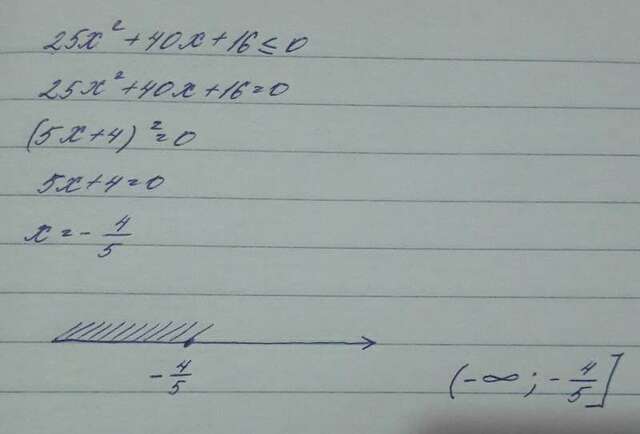 25x² + 40x + 16 ≤ 0
25x² + 40x + 16 = 0
(5x + 4)² = 0
5x + 4 = 0
x = - 4/5
- 4/5
(-∞; - 4/5]